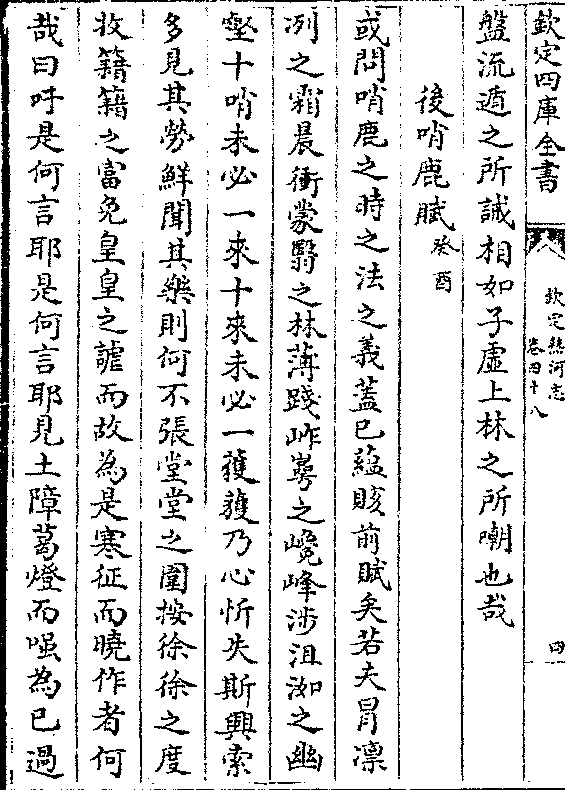 欽定四庫全書
欽定熱河志
卷四十八
四
盤流遁之所誡相如子虛上林之所嘲也哉
後哨鹿賦癸酉
或問哨鹿之時之法之義蓋已蘊賅前賦矣若夫冐凛
冽之霜晨衝蒙翳之林薄踐岞崿之巉峰涉沮洳之幽
壑十哨未必一來十來未必一獲獲乃心忻失斯興索
多見其勞鮮聞其樂則何不張堂堂之圍按徐徐之度
收籍籍之富免皇皇之謔而故為是寒征而曉作者何
哉曰吁是何言耶是何言耶見土障葛燈而嗤為已過